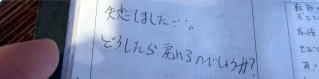 失恋しました…。
どうしたら戻れるのでしょうか?